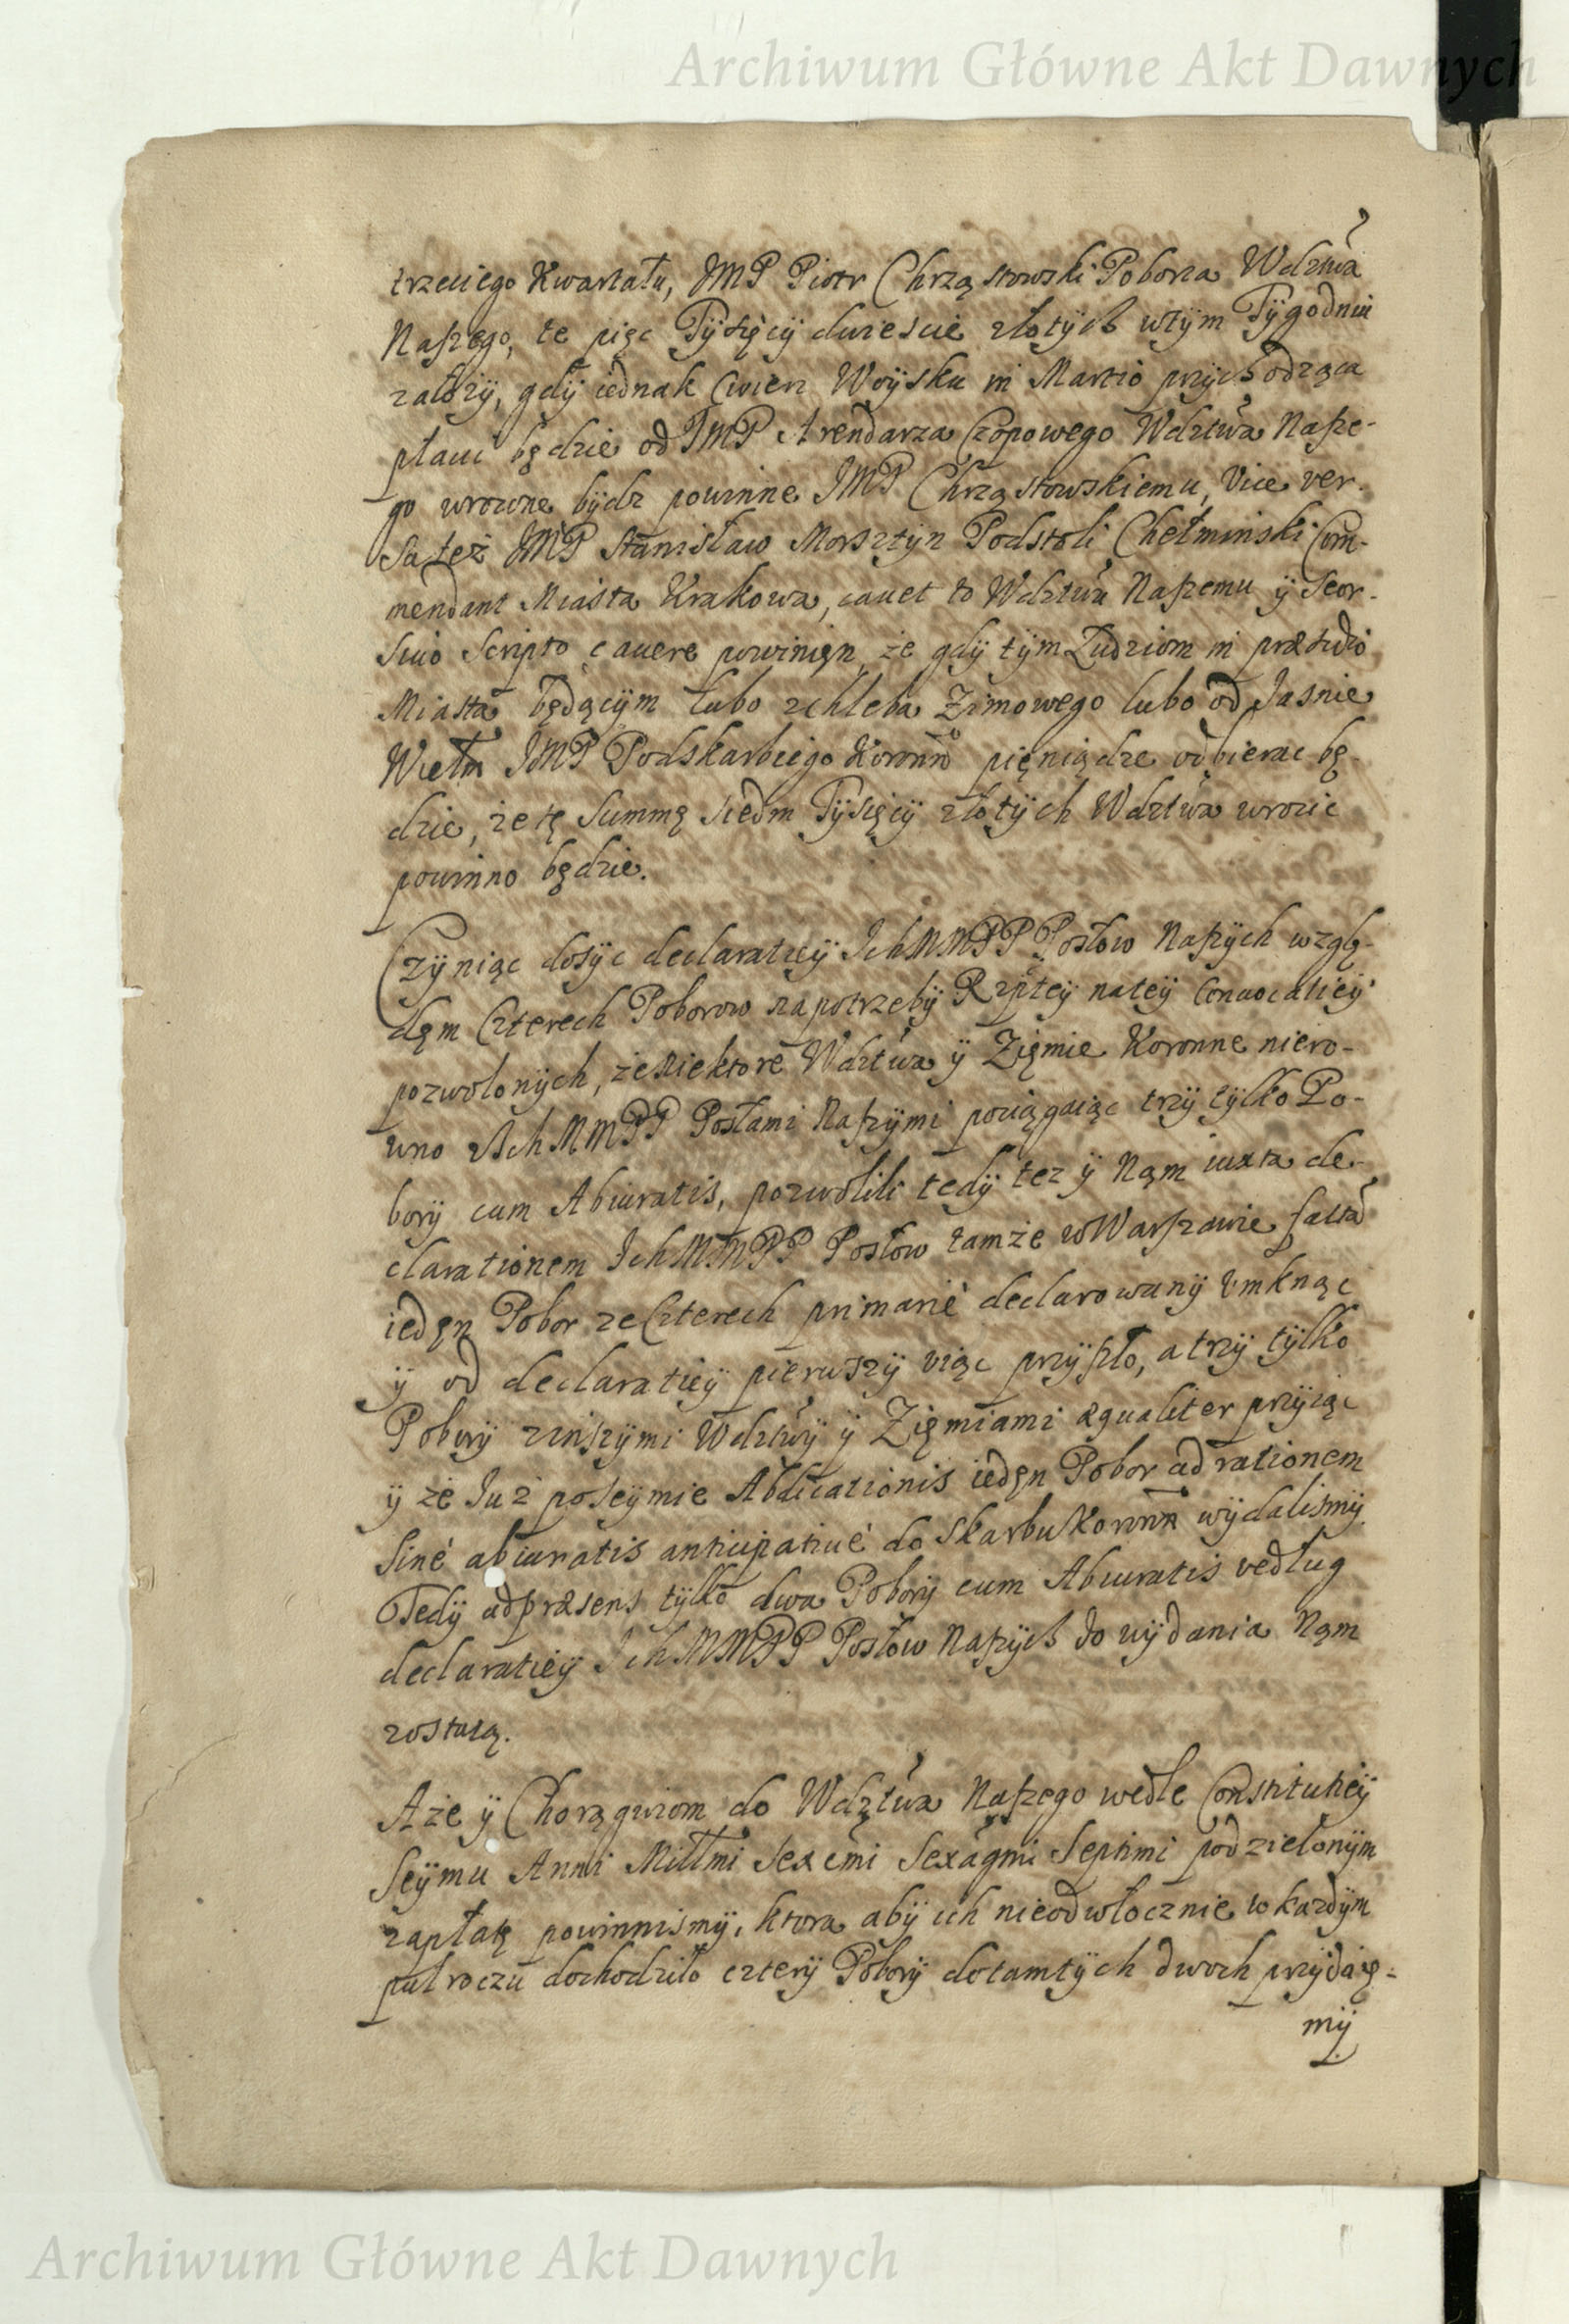 Archiwum Główne Akt Dawnych
trzeciego Kwartału, JMP Piotr Chrząstowski Poborca Wdztwa
Naszego, te pięc Tysięcÿ dwiescie złotÿch wtÿm Tÿgodniu
załozÿ, gdÿ iednak Cwierc Woÿsku in Martio przÿchodząca
płacic będzie od JMP Arendarza Czopowego Wdztwa Nasze-
go wrocone bÿdz powinne JMP Chrząstowskiemu, Vice ver-
sa też JMP Stanisław Morsztÿn Podstoli Chełminski Com-
mendant Miasta Krakowa, cauet to Wdztwu Naszemu ÿ Seor-
siuo Scripto cauere powinięn, że gdÿ tÿm Ludziom in præsidio
Miasta będącÿm lubo zchleba Zimowego lubo od Jasnie
Wielm JMP Podskarbiego Koronno pięniądze odbierac bę-
dzie, że tę Summę siedm Tÿsięcÿ złotÿch Wdztwa wrocic
powinno będzie.
Czÿniąc dosÿc declaratieÿ Ich MMPP Posłow Naszÿch wzglę-
dęm Czterech Poborow na potrzebÿ Rzpteÿ nateÿ Conuocatieÿ
pozwolonÿch, że niektore Wdztwa ÿ Zięmie Koronne niero-
wno z Ich MMPP Posłami Naszÿmi pociągaiąc trzÿ tÿlko Po-
borÿ cum Abiuratis, pozwolili tedÿ tez ÿ Nąm iuxta de-
clarationem Ich MMPP Posłow tamże w Warszawie facta
iedęn Pobor ze Czterech primarie declarowanÿ Vmknąc
ÿ od declaratieÿ pierwszÿ viąc przÿszło, a trzÿ tÿlko
Poborÿ zinszÿmi Wdztwÿ ÿ Zięmiami æqualiter przÿiąc
ÿ że Iuż poseÿmie Abdicationis iedęn Pobor ad rationem
Sine abiuratis anticipatiue do Skarbu Koronn wÿdalismÿ.
Tedÿ adpræsens tÿlko dwa Poborÿ cum Abiuratis vedług
declaratieÿ Ich MMPP Posłow Naszÿch do wÿdania Nąm
zostaią.
Aże ÿ Chorągwiom do Wdztwa Naszego wedle Constitutieÿ
Seÿmu Anni Millmi Sexcmi Sexagmi Septimi podzielonÿm
zapłatę powinnismÿ, ktora abÿ ich nieodwłocznie w kazdÿm
pułroczu dochodziło czterÿ Poborÿ dotamtÿch dwoch przÿdaię-
mÿ
Archiwum Główne Akt Dawnych